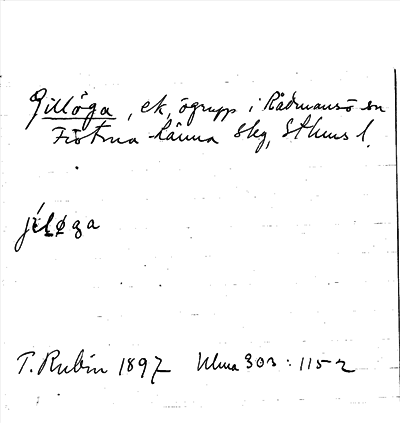 Gillöga, ek, ögrupp i Rådmansö sn
Frötuna länna skg, Sthms l.
jíløga
T. Rubin 1897 Ulma 303:115-2